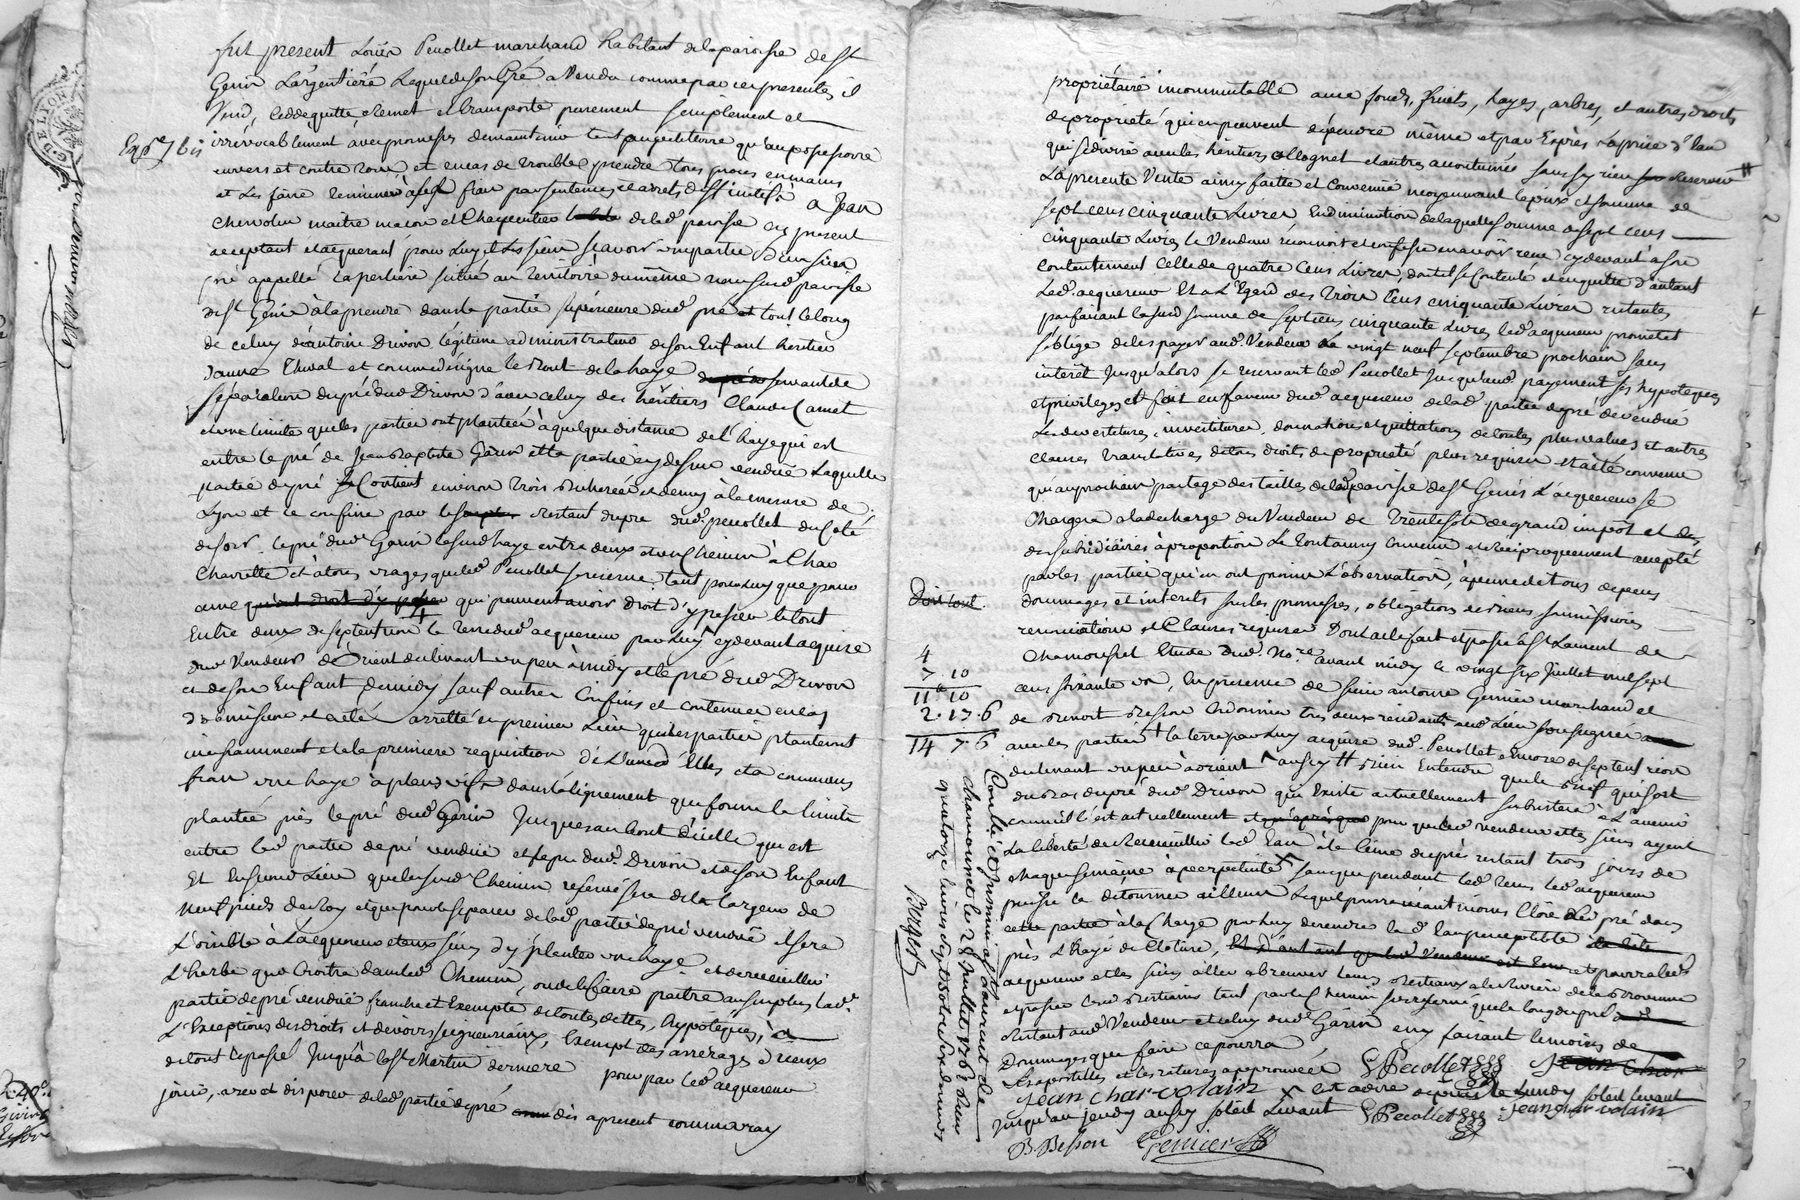 fut present Louis Pecollet marchand habitant de la paroisse de St
Genis L'argentiere Lequel de son Gré a Vendu comme par ces presentes il
Vend, cedde quitte remet et transporte purement simplement et
irrévocablement avec promesses de maintenir tant au petitoire qu'au possessoire
envers et contre tous et en cas de trouble prendre tous proces en mains
et Les faire terminer à ses frais par sentences et arrets deffinitifs à Jean
Charvolin maitre macon et Charpentier de lad. paroisse cy present
acceptant et acquerant pour Luy et Les siens scavoir une partie d'un sien
pré appellé La perliere scitué au territoire du même nom susd. paroisse
de St Genis à la prendre dans la partie superieure dud. pré et tout le long
de celuy d'antoine Drivon légitime administrateur de son Enfant héritier
d'anne Thival et comme designe le bout de la haye servant de
séparation du pré dud. Drivon d'avec celuy des héritiers Claude Camet
et une limite que les parties ont plantée à quelque distance de l'haye qui est
entre le pré de Jean Baptiste Garin et la partie cy dessus vendue Laquelle
partie de pré Contient environ trois bicherées et demy à la mesure de
Lyon et se confine par le restant du pré dud. pecollet du Coté
de soir, le pré dud. Garin lesusd haye entre deux et un Chemin à Char
Charrette et à tous usages que led. Pecollet se reserve tant pour Luy que pour
ceux qui peuvent avoir droit d'y passer le tout
Entre deux de septentrion la terre dud. acquereur par Luy cy devant acquise
dud. Vendeur d'Orient declinant un peu à midy et le pré dud. Drivon
et de son Enfant de midy sauf autres Confins et contenue en cas
d'obmission et a eté arretté en premier Lieu que les parties planteront
incessamment et à la premiere requisition de L'une d'Elles et à communs
frais une haye à plans vifs dans l'alignement que forme la limite
plantée près le pré dud. Garin Jusques au bout d'icelle qui est
entre lad. partie de pré vendue et le pré dud. Drivon et de son Enfant
Et En second Lieu que le susd. Chemin reservé sera de la Largeur de
neuf pieds de roy et que pour le separer de lad. partie de pré vendue il sera
Loisible à L'acquereur et aux siens d'y planter une haye et de recueillir
L'herbe qui Croitra dans led. Chemin, ou de la faire paitre aussy plus lad.
partie de pré vendue franche et Exempte de toutes dettes, hypotèques, à
L'Exeptions des droits et devoirs seigneuriaux, Exempt des arrerages d'iceux
de tout le passé Jusqu'à la St Martin derniere pour par led. acquereur
jouir, user et disposer de lad. partie de pré dès apresent comme vray
Exp. 7bis
propriétaire incommutable avec fonds, fruits, hayes, arbres, et autres droits
de propriété qui en peuvent dépendre même et par Exprès La prise d'Eau
qui se divise avec les heritiers Ollognet et autres accoutumés sans s'y rien reserver
La presente Vente ainsy faitte et Convenue moyennant le prix et somme de
sept cens cinquante Livres En diminution de laquelle somme de sept cens
cinquante Livres le Vendeur reconnoit et confesse en avoir receu cy devant à son
contentement Celle de quatre Cens Livres, dont il se Contente et en quitte d'autant
Led. acquereur Et à L'Egard des trois Cens cinquante Livres restantes
parfaisant la susd. somme de sept cens cinquante Livres led. acquereur promet et
s'oblige de les payer aud. Vendeur le vingt neuf septembre prochain sans
interêt Jusqu'alors se reservant led. Pecollet Jusqu'aud. payement ses hypoteques
et privileges et fait en faveur dud. acquereur de lad. partie de pré de vendue
Les devestitures, investitures, donnations et quittations de toutes plus values et autres
clauses translatives de tous droits de propriété plus requises et a été convenu
qu'au prochain partage des tailles de lad. paroisse de St Genis L'acquereur se
Chargera à la decharge du Vendeur de trente sols de grand impost et des
des subsidiaires à proportion Le tout ainsy convenu et reciproquement accepté
par les parties qui en ont promis L'observation, à peine de tous depens
dommages et interets sous les promesses, obligations de biens soumissions
renonciations et Clauses requises Dont acte fait et passé à St Laurent de
Chamousset Etude dud. No.re avant midy ce vingt six Juillet mil sept
cens soixante un, En presence de sieur antoine Genier marchand et
de benoit Besson Cordonnier tous deux residents aud. Lieu soussignés
avec les parties + la terre par Luy acquise dud. Pecollet Encore de septentrion
declinant un peu à orient aussy # bien Entendu que le bief qui sort
du bas du pré dud. Drivon qui Existe actuellement subsistera à L'avenir
comme il l'est actuellement pour que led. vendeur et les siens ayent
La liberté de Recueillir led. Eau à la Cime du pré restant trois jours de
chaque semaine à perpetuité X sans que pendant led. tems led. acquereur
puisse la detourner ailleurs Lequel pourra neanmoins Clore led. pré dans
cette partie à la Charge par Luy de rendre lad. Eau perceptible
près L'haye de Cloture, et pourra led.
acquereur et les siens aller abreuver leurs bestiaux à la riviere de la brevenne
et passer lesd. bestiaux tant par le Chemin sus reservé que le long du pré
Restant aud. Vendeur et celuy dud. Garin en y faisant le moins de
Dommages que faire ce pourra
Les apostilles et les ratures approuvées
Jean charvolain
X c'est à dire depuis le Lundy soleil levant
Jusqu'au jeudy aussy soleil Levant
L Pecollet
jean charvolain
B. Besson
Genier
4
7 10
11 10
2. 17. 6
14 7. 6
Controllé et insinué à St Laurent de
chamousset le 28 Juillet 1761 Reçu
quatorze livres sept sols six deniers
Berger